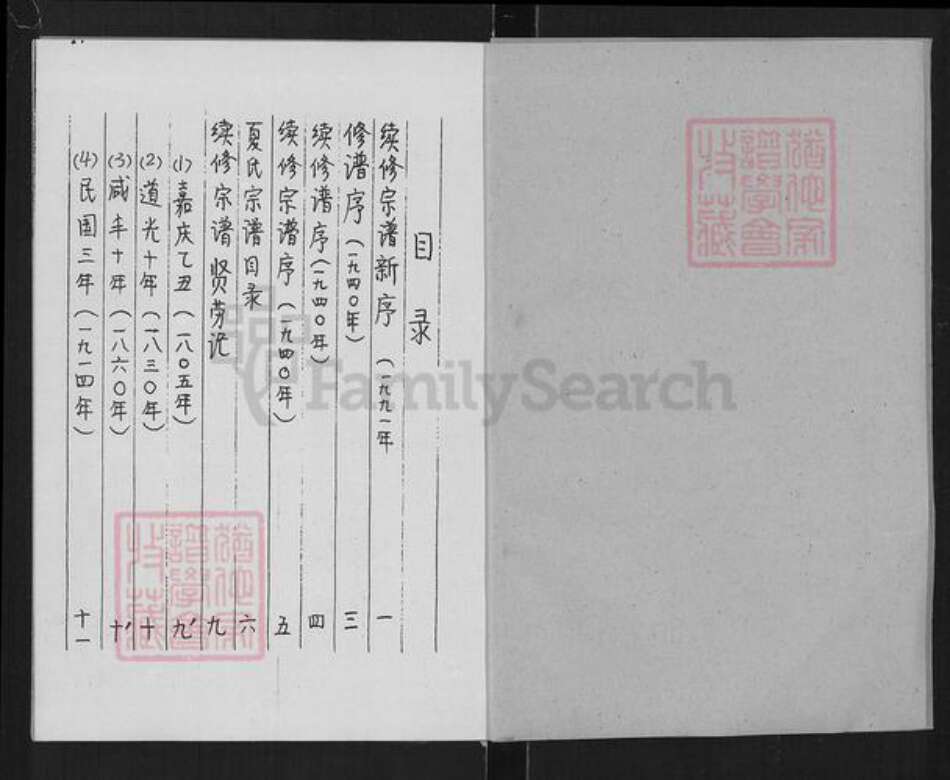 目录
续修宗谱新序（一九九一年
修谱序（一九四〇年）
续修谱序（一九四〇年）
续修宗谱序（一九四〇年）
夏氏宗谱目录
续修宗谱贤劳记
(1)嘉庆乙丑（一八〇五年）
(2)道光十年（一八三〇年）
(3)咸丰十年（一八六〇年）
(4)民国三年（一九一四年）
一
三
四
五
六
九
九'
十
十'
十一
FamilySearch
猶他家
譜學會
收藏
猶他家
譜學會
收藏